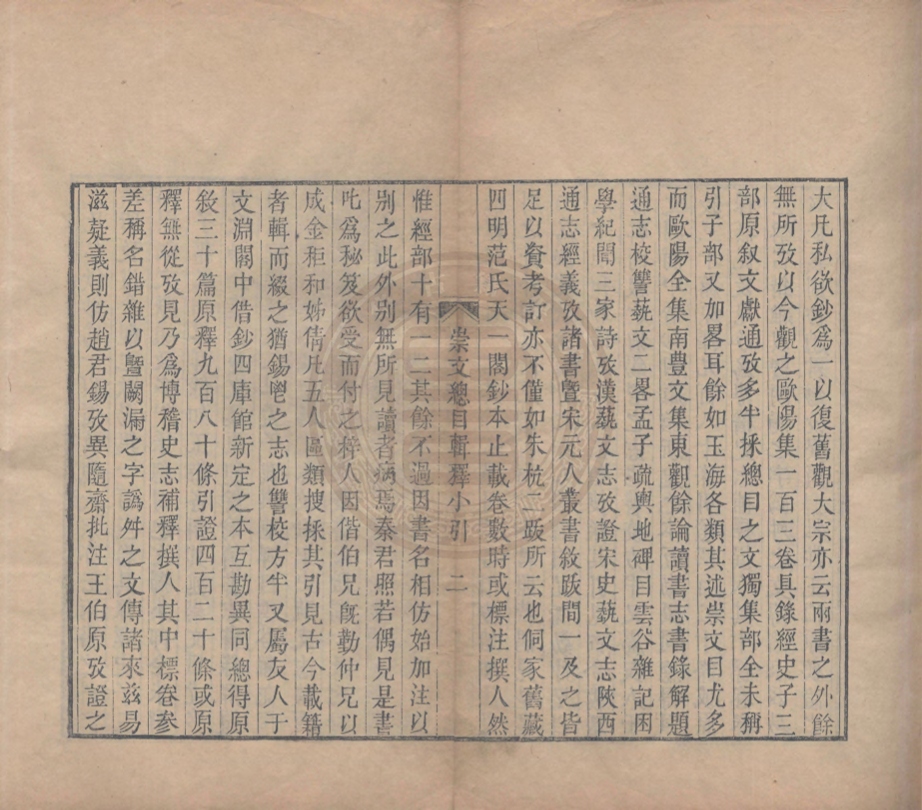 大凡私欲鈔爲一以復舊觀大宗亦云兩書之外餘
無所攷以今觀之歐陽集一百三卷具錄經史子三
部原叙文獻通攷多半採總目之文獨集部全未稱
引子部又加畧耳餘如玉海各類其述崇文目尤多
而歐陽全集南豊文集東觀餘論讀書志書錄解題
通志校讐蓺文二畧孟子疏輿地碑目雲谷雜記困
學紀聞三家詩攷漢蓺文志攷證宋史蓺文志陝西
通志經義攷諸書曁宋元人叢書敘跋間一及之皆
足以資考訂亦不僅如朱杭二跋所云也侗家舊藏
四明范氏天一閣鈔本止載卷數時或標注撰人然
崇文總目輯釋小引 二
惟經部十有一二其餘不過因書名相仿始加注以
別之此外别無所見讀者病焉秦君照若偶見是書
叱爲秘笈欲受而付之梓人因偕伯兄旣勤仲兄以
成金秬和姊倩凡五人區類搜採其引見古今載籍
者輯而綴之猶錫鬯之志也讐校方半又屬友人于
文淵閣中借鈔四庫館新定之本互勘異同總得原
敘三十篇原釋九百八十條引證四百二十條或原
釋無從攷見乃爲博稽史志補釋撰人其中標卷參
差稱名錯雜以曁闕漏之字譌舛之文傳諸來兹易
滋疑義則仿趙君錫攷異隨齋批注王伯原攷證之